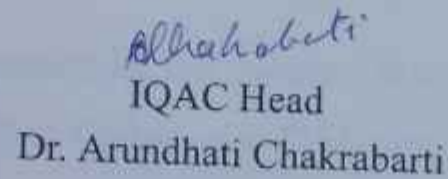 AChakrabarti
IQAC Head
Dr. Arundhati Chakrabarti